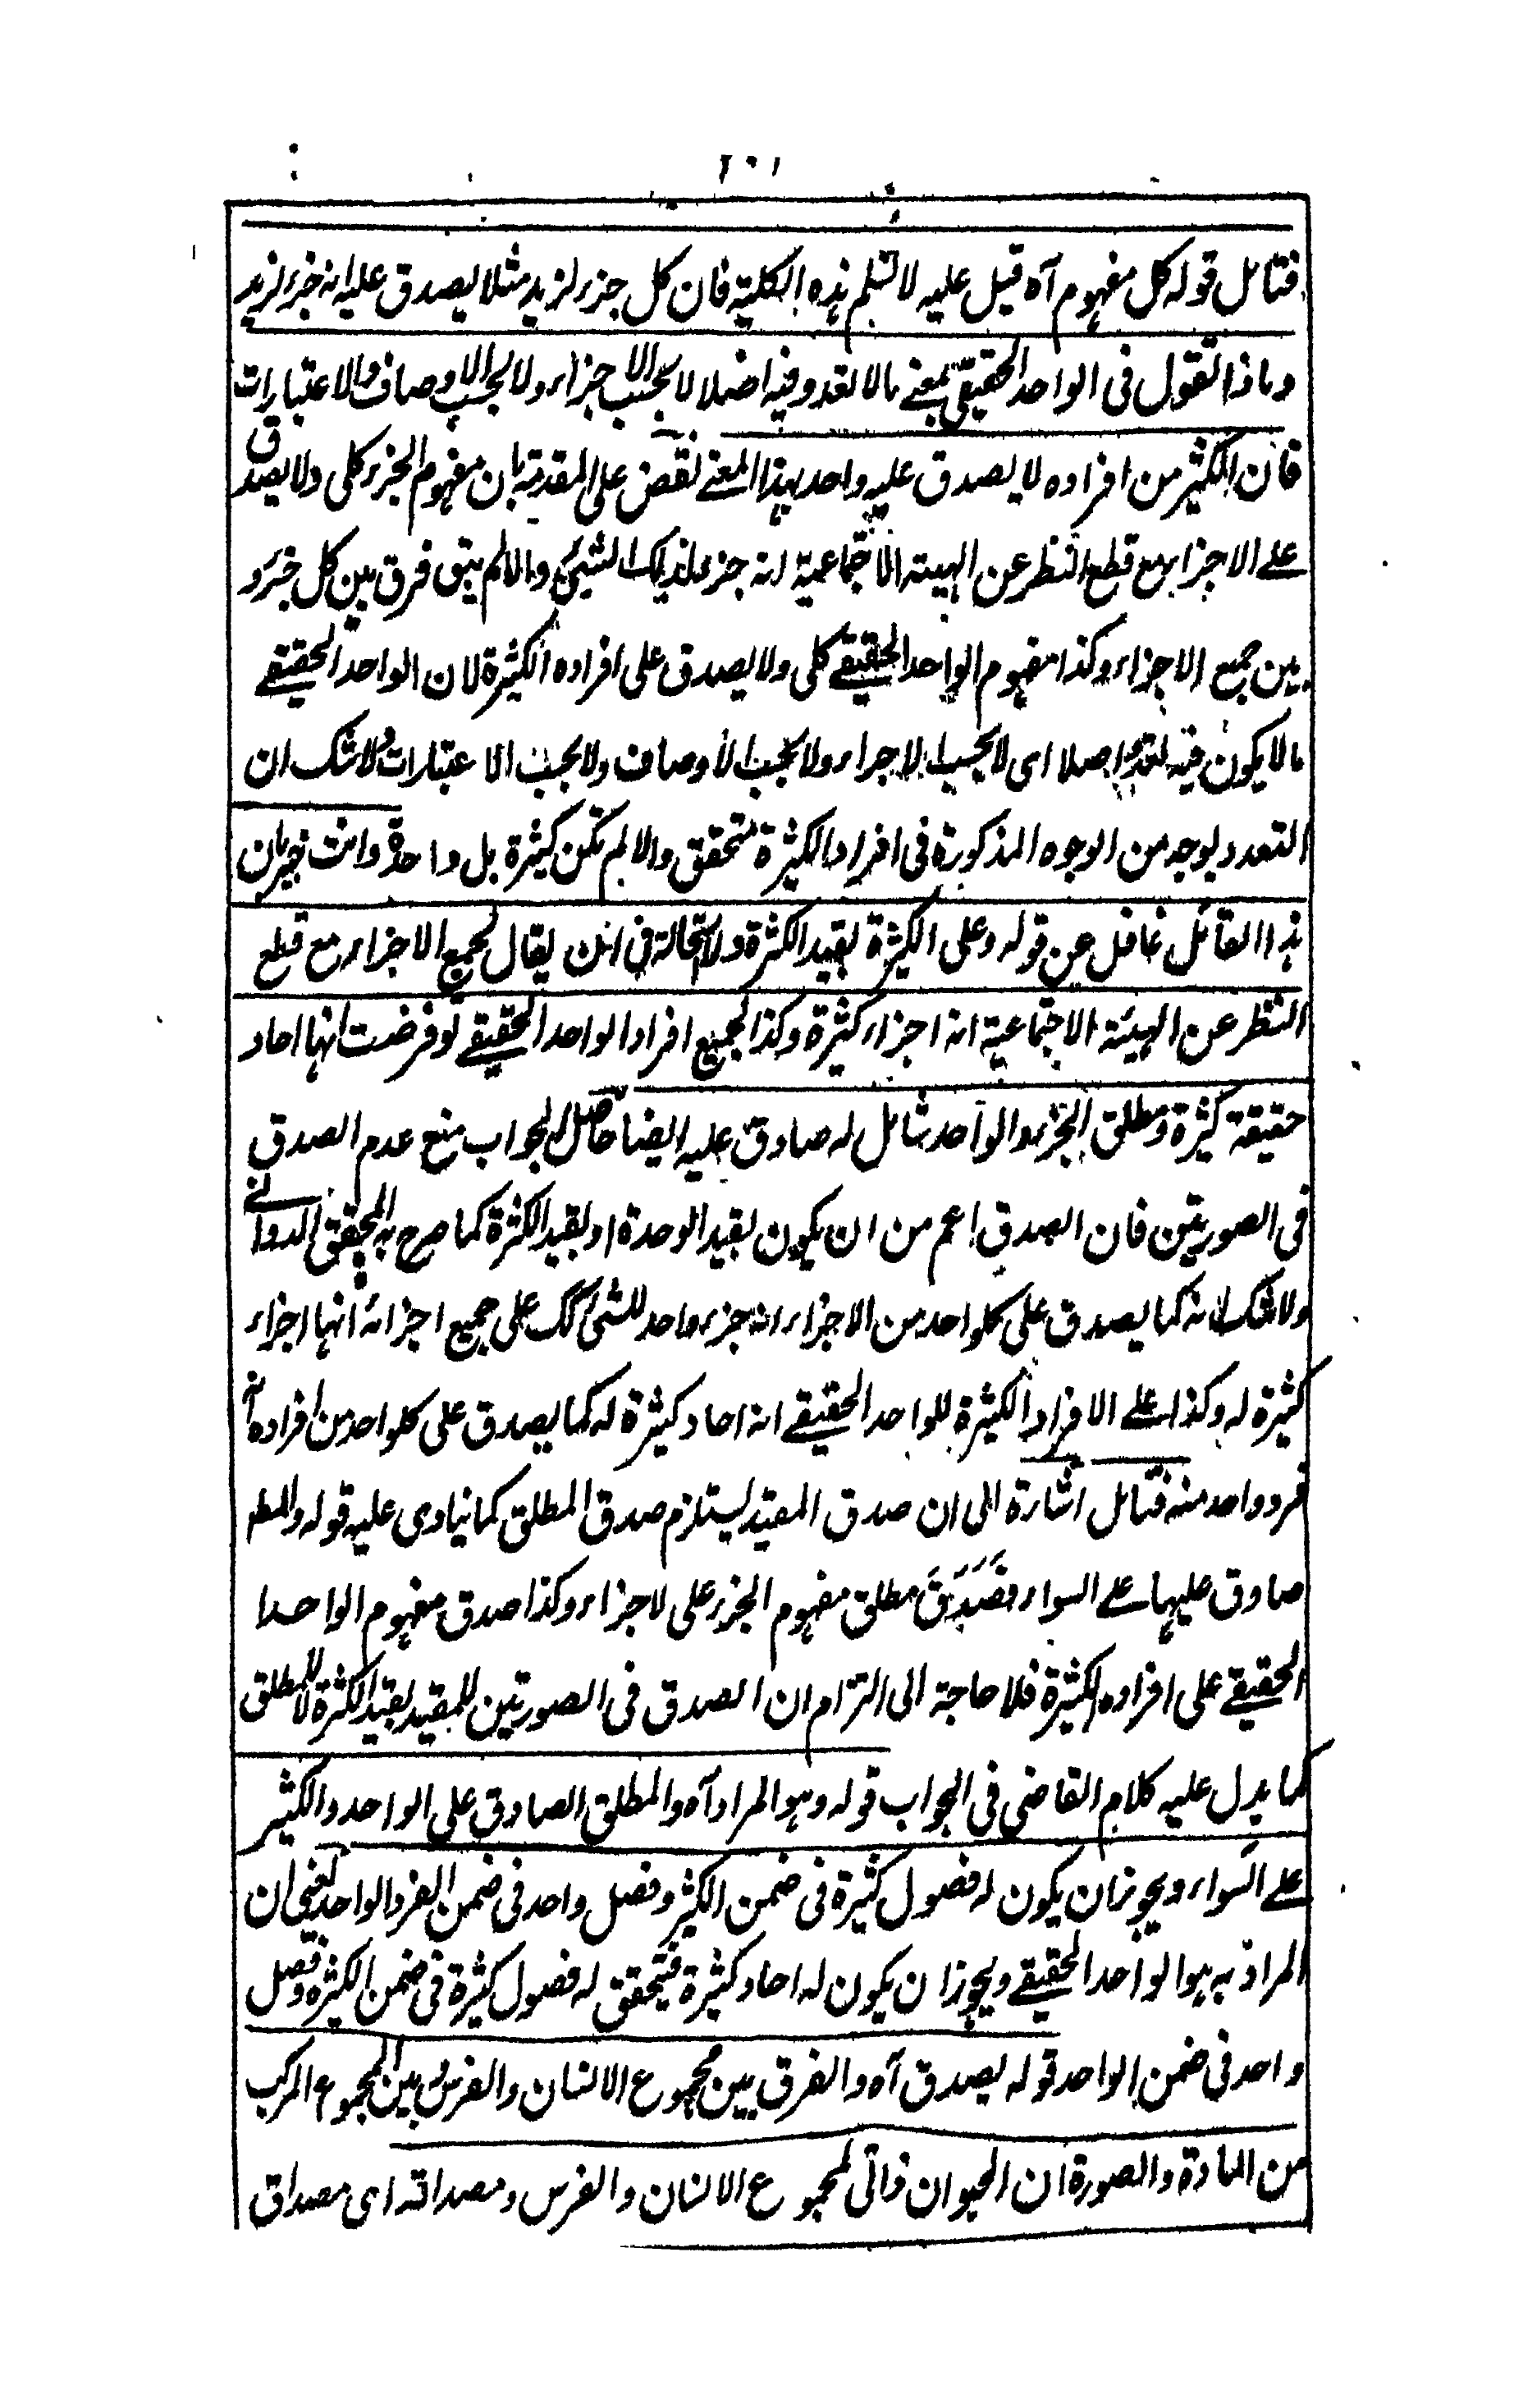 ١٠٢
فتامل قوله كل مفهوم آه قيل عليه لا نسلم هذه الكلية فان كل جزء لزيد مثلا يصدق عليه انه جزء لزيد
وماذا تقول فى الواحد الحقيقى بمعنى مالا تعدد فيه اصلا لا بحسب الاجزاء ولا بحسب الاوصاف والاعتبارات
فان الكثير من افراده لا يصدق عليه واحد بهذا المعنى نقض على المقدمة بان مفهوم الجزء كلى ولا يصدق
على الاجزاء مع قطع النظر عن الهيئة الاجتماعية انه جزء لذلك الشئ والا لم يبق فرق بين كل جزء و
بين جميع الاجزاء وكذا مفهوم الواحد الحقيقے كلى ولا يصدق على افراده الكثيرة لان الواحد الحقيقے
مالا يكون فيه تعدد اصلا اى لا بحسب الاجزاء ولا بحسب الاوصاف ولا بحسب الاعتبارات ولا شك ان
التعدد بوجه من الوجوه المذكورة فى افراد الكثيرة متحقق والا لم تكن كثيرة بل واحدة وانت خبير بان
هذا القائل غافل عن قوله وعلى الكثيرة بقيد الكثرة ولا استحالة فى ان يقال لجميع الاجزاء مع قطع
النظر عن الهيئة الاجتماعية انه اجزاء كثيرة وكذا لجميع افراد الواحد الحقيقے لو فرضت انها احاد
حقيقة كثيرة ومطلق الجزء والواحد شامل له صادق عليه ايضا حاصل الجواب منع عدم الصدق
فى الصورتين فان الصدق اعم من ان يكون بقيد الوحدة او بقيد الكثرة كما صرح به المحقق الدوانے
ولا شك انه كما يصدق على كلواحد من الاجزاء انه جزء واحد للشئ كك على جميع اجزائه انها اجزاء
كثيرة له وكذا علے الافراد الكثيرة للواحد الحقيقے انه احاد كثيرة له كما يصدق على كلواحد من افراده انه
فرد واحد منه فتامل اشارة الى ان صدق المقيد يستلزم صدق المطلق كما ينادى عليه قوله والمط
صادق عليها علے السواء فصدق مطلق مفهوم الجزء على لاجزاء وكذا صدق مفهوم الواحد ا
لحقيقے على افراده الكثيرة فلا حاجة الى التزام ان الصدق فى الصورتين للمقيد بقيد الكثرة لا للمطلق
كما يدل عليه كلام القاضى فى الجواب قوله وهو المراد آه والمطلق الصادق على الواحد والكثير
علے السواء ويجوز ان يكون له فصول كثيرة فى ضمن الكثير وفصل واحد فى ضمن الفرد الواحد يعنى ان
المراد به هو الواحد الحقيقے ويجوز ان يكون له احاد كثيرة فيتحقق له فصول كثيرة فى ضمن الكثرة وفصل
واحد فى ضمن الواحد قوله يصدق آه والفرق بين مجموع الانسان والفرس وبين المجموع المركب
من المادة والصورة ان الحيوان ذاتى لمجموع الانسان والفرس ومصداقه اى مصداق